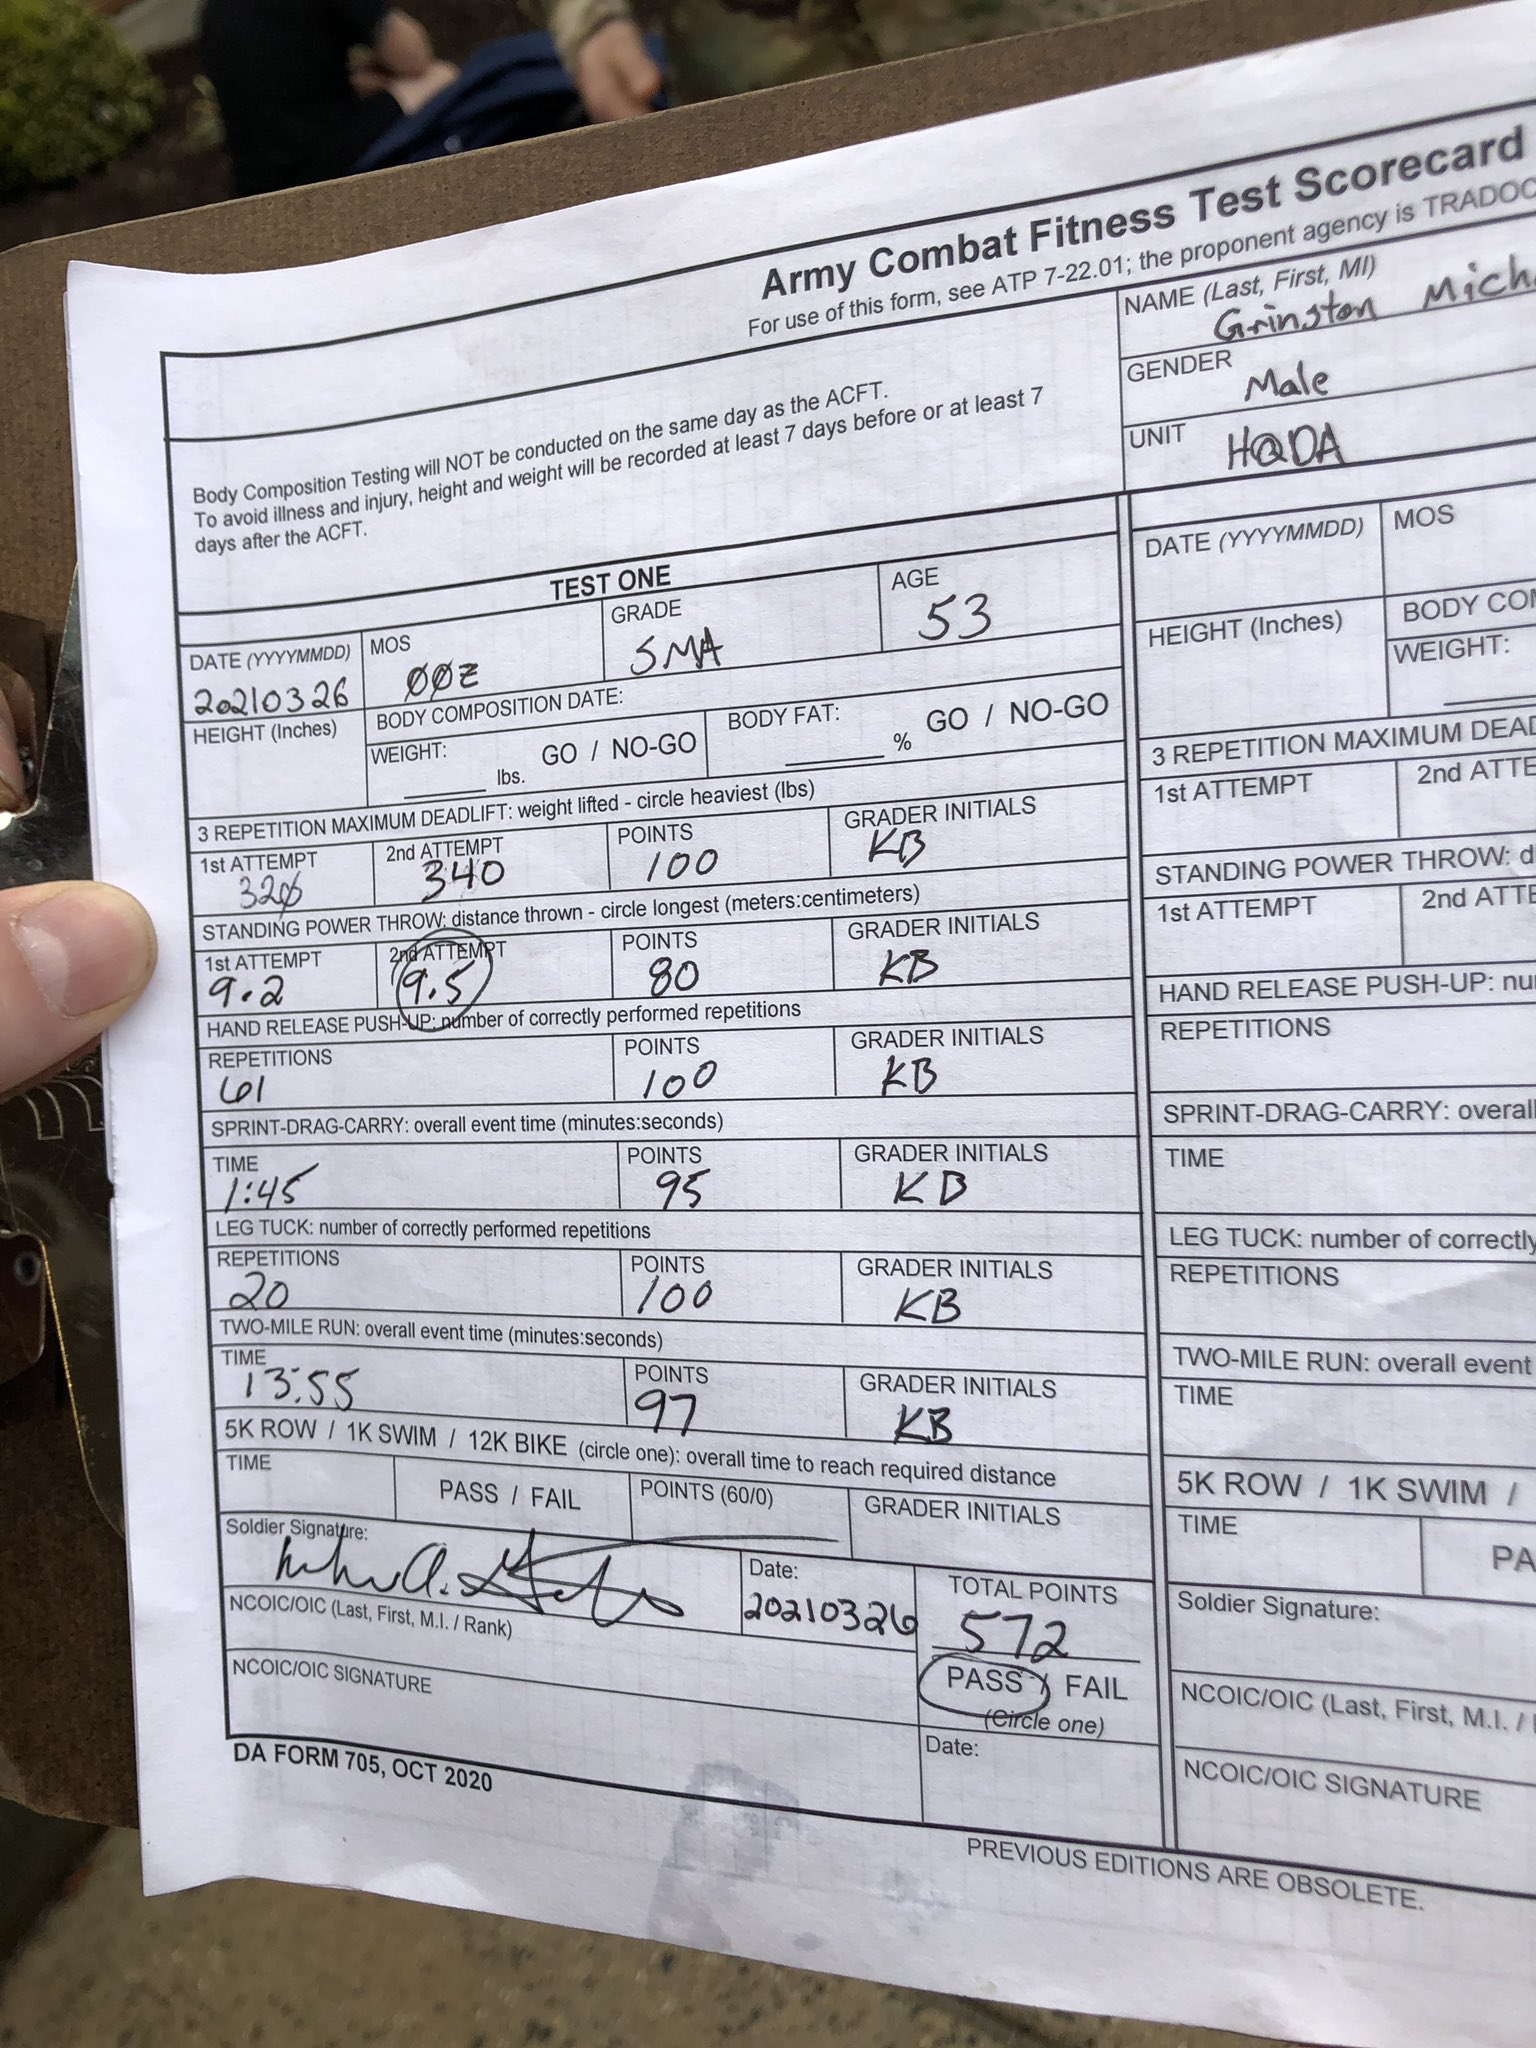 Army Combat Fitness Test Scorecard
For use of this form, see ATP 7-22.01; the proponent agency is TRADOC
NAME (Last, First, MI)
Grinston Mich
GENDER
Male
UNIT
HQDA
Body Composition Testing will NOT be conducted on the same day as the ACFT.
To avoid illness and injury, height and weight will be recorded at least 7 days before or at least 7
days after the ACFT.
TEST ONE
DATE (YYYYMMDD)
20210326
MOS
00Z
GRADE
SMA
AGE
53
HEIGHT (Inches)
BODY COMPOSITION DATE:
WEIGHT:
lbs.
GO / NO-GO
BODY FAT:
%
GO / NO-GO
3 REPETITION MAXIMUM DEADLIFT: weight lifted - circle heaviest (lbs)
1st ATTEMPT
320
2nd ATTEMPT
340
POINTS
100
GRADER INITIALS
KB
STANDING POWER THROW: distance thrown - circle longest (meters:centimeters)
1st ATTEMPT
9.2
2nd ATTEMPT
9.5
POINTS
80
GRADER INITIALS
KB
HAND RELEASE PUSH-UP: number of correctly performed repetitions
REPETITIONS
61
POINTS
100
GRADER INITIALS
KB
SPRINT-DRAG-CARRY: overall event time (minutes:seconds)
TIME
1:45
POINTS
95
GRADER INITIALS
KB
LEG TUCK: number of correctly performed repetitions
REPETITIONS
20
POINTS
100
GRADER INITIALS
KB
TWO-MILE RUN: overall event time (minutes:seconds)
TIME
13:55
POINTS
97
GRADER INITIALS
KB
5K ROW / 1K SWIM / 12K BIKE (circle one): overall time to reach required distance
TIME
PASS / FAIL
POINTS (60/0)
GRADER INITIALS
Soldier Signature:
Date:
20210326
TOTAL POINTS
572
PASS / FAIL
(Circle one)
NCOIC/OIC (Last, First, M.I. / Rank)
NCOIC/OIC SIGNATURE
Date:
DA FORM 705, OCT 2020
PREVIOUS EDITIONS ARE OBSOLETE.
DATE (YYYYMMDD)
MOS
HEIGHT (Inches)
BODY COM
WEIGHT:
3 REPETITION MAXIMUM DEAD
1st ATTEMPT
2nd ATTE
STANDING POWER THROW: d
1st ATTEMPT
2nd ATTE
HAND RELEASE PUSH-UP: nu
REPETITIONS
SPRINT-DRAG-CARRY: overall
TIME
LEG TUCK: number of correctly
REPETITIONS
TWO-MILE RUN: overall event
TIME
5K ROW / 1K SWIM /
TIME
PA
Soldier Signature:
NCOIC/OIC (Last, First, M.I. /
NCOIC/OIC SIGNATURE